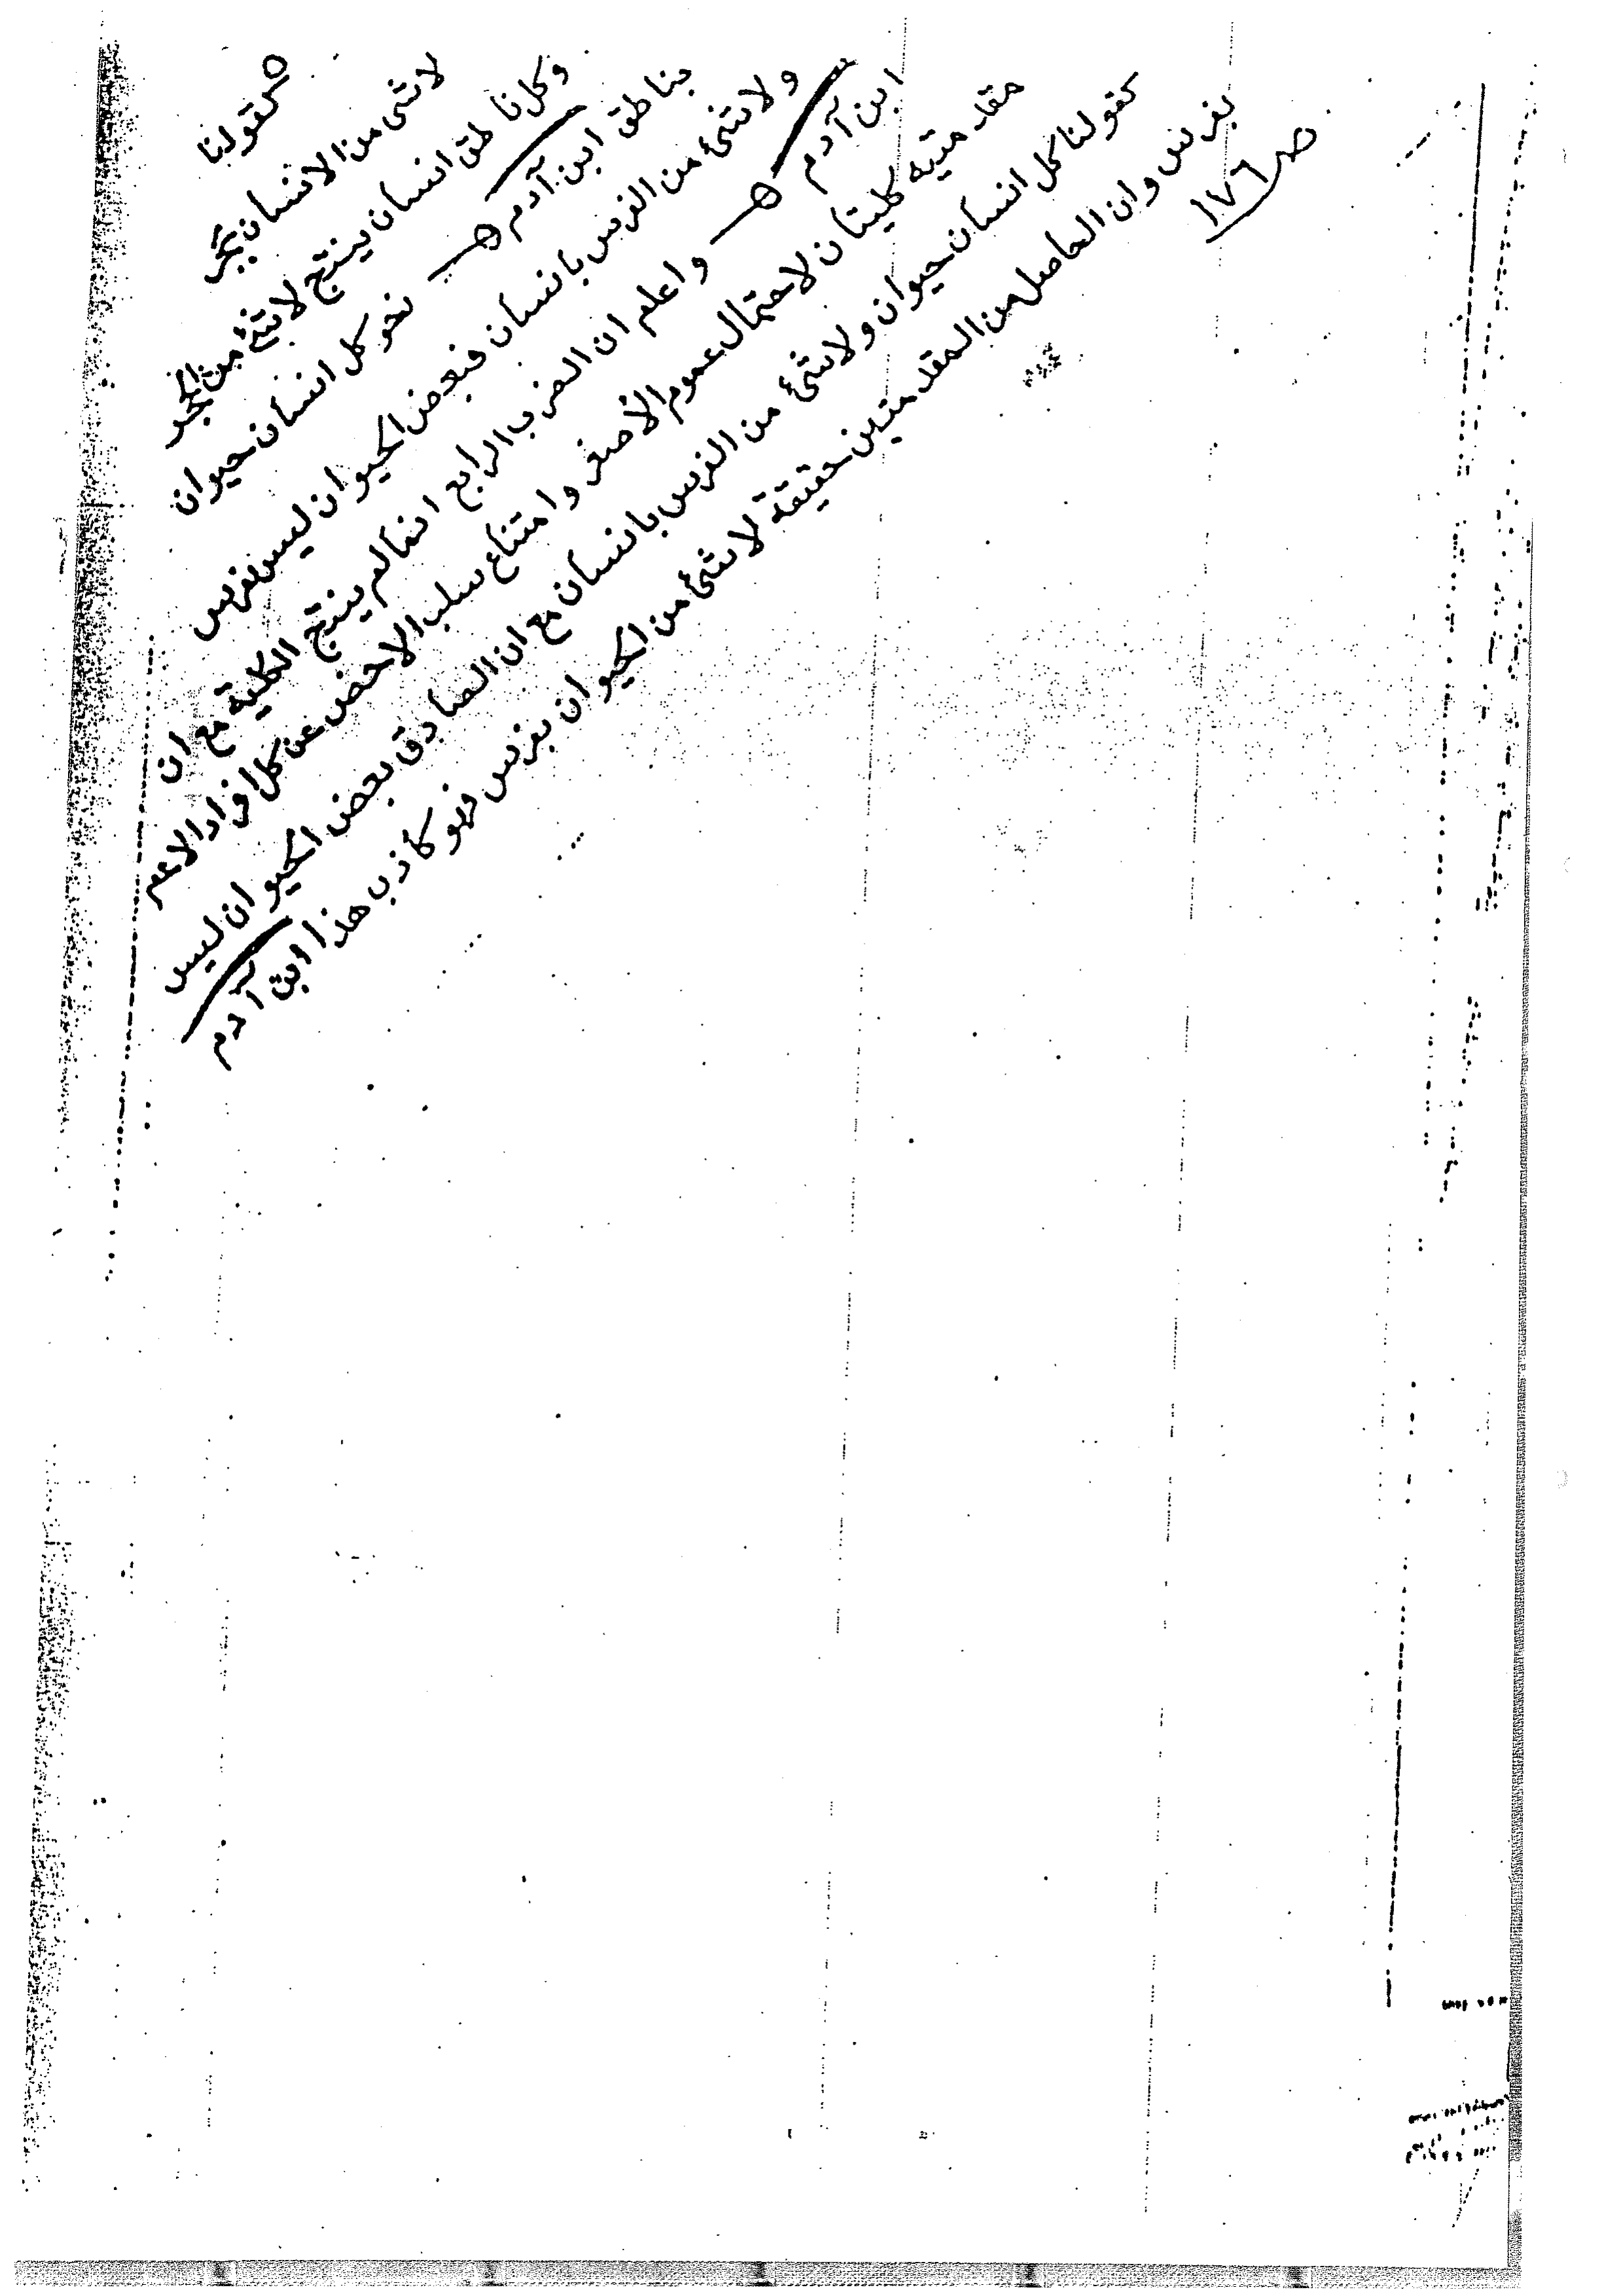 ه كقولنا
لا شئ من الانسان بحجر
وكل ناطق انسان ينتج لا شئ من الحجر
بناطق ابن آدم ه‍ نحو كل انسان حيوان
ولا شئ من الفرس بانسان فبعض الحيوان ليس بفرس
ابن آدم ه‍ واعلم ان الضرب الرابع انما لم ينتج الكلية مع ان
مقدمتيه كليتان لاحتمال عموم الأصغر وامتناع سلب الاخص عن كل افراد الاعم
كقولنا كل انسان حيوان ولا شئ من الفرس بانسان مع ان الصادق بعض الحيوان ليس
بفرس وان الحاصل من المقدمتين حقيقة لا شئ من الحيوان بفرس فهو كاذب هذا ابن آدم
ص ١٧٦